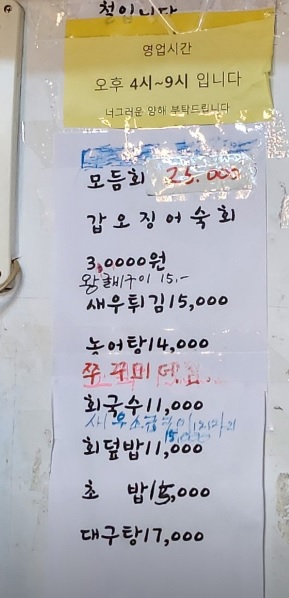 철입니다
영업시간
오후 4시~9시 입니다
너그러운 양해 부탁드립니다
모듬회 25.000
갑오징어숙회
3,0000원
왕새우구이 15,-
새우튀김15,000
농어탕14,000
쭈꾸미
회국수11,000
회덮밥11,000
초 밥15,000
대구탕17,000